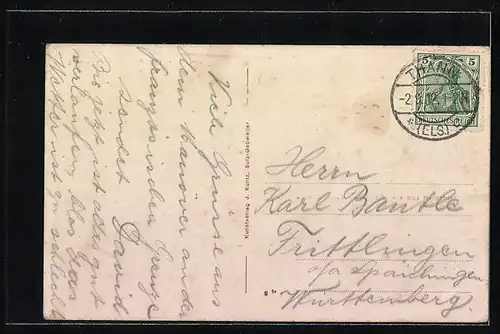 Viele Grüsse aus
dem Manöver an der
französischen Grenze
sendet
David
Bis jetzt ist alles gut
verlaufen, blos das
Wetter ist zu schlecht
Kunstverlag J. Kuntz, Sulz-Gebweiler
5 5
DEUTSCHES REICH
THANN
(ELS)
Herrn
Karl Bantle
Frittlingen
o/a Spaichingen
Württemberg.